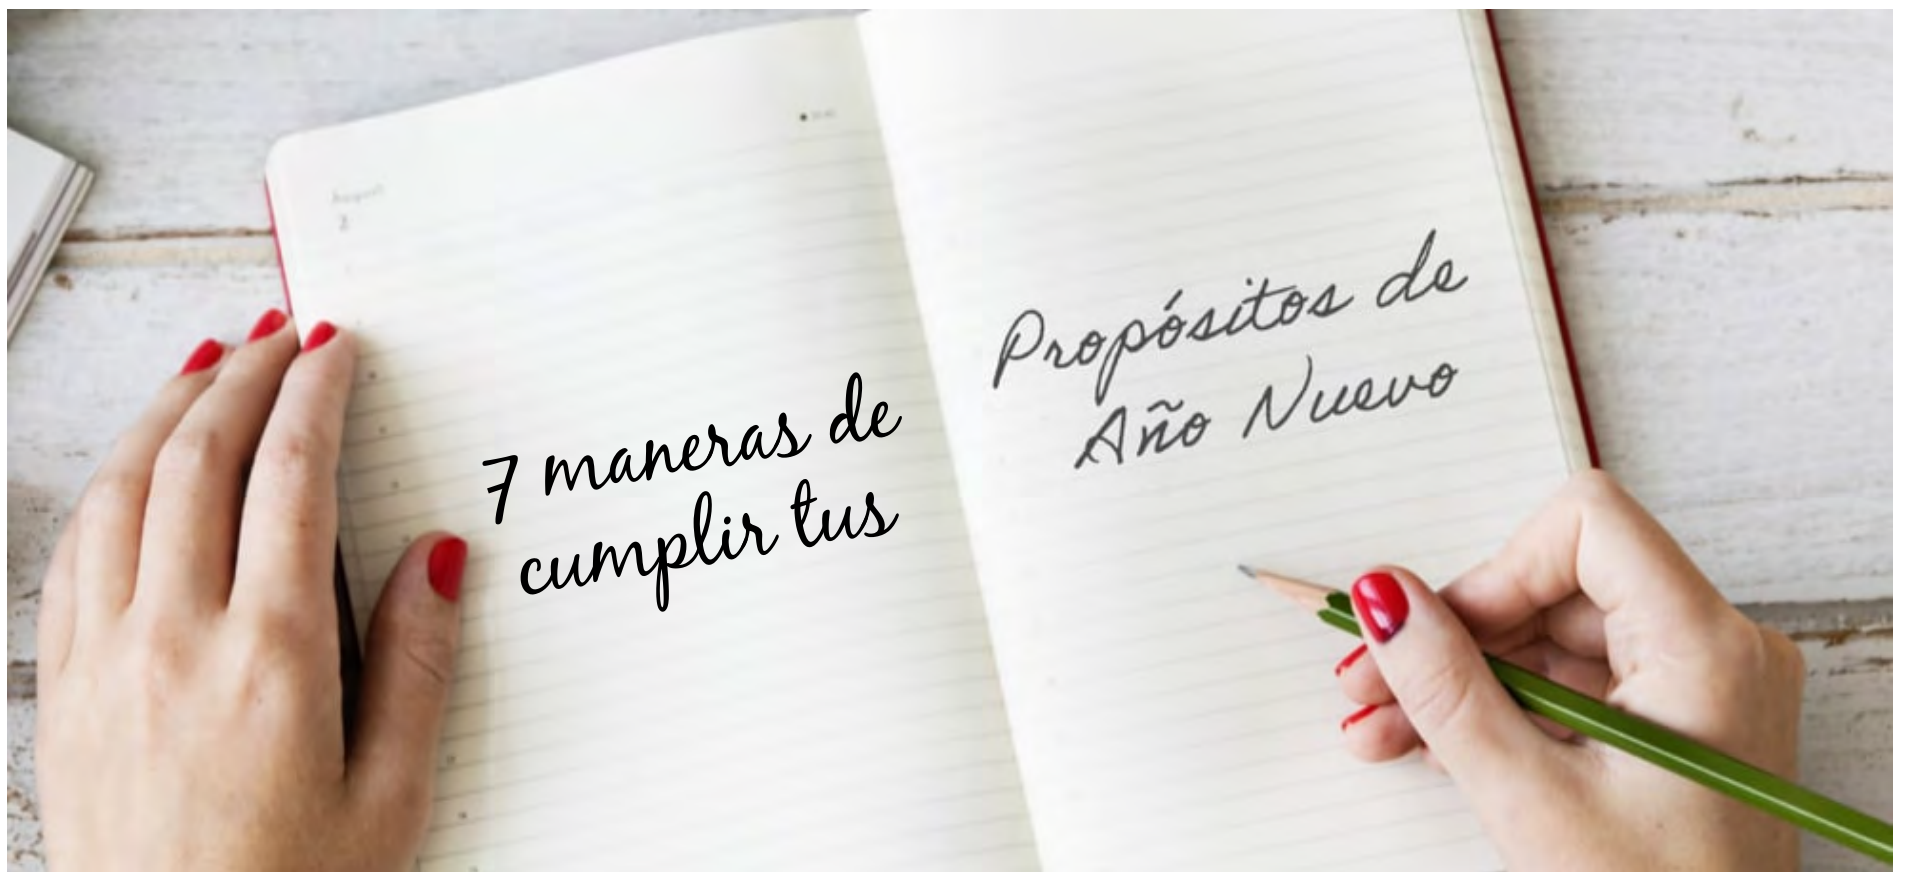 7 maneras de
cumplir tus
Propósitos de
Año Nuevo